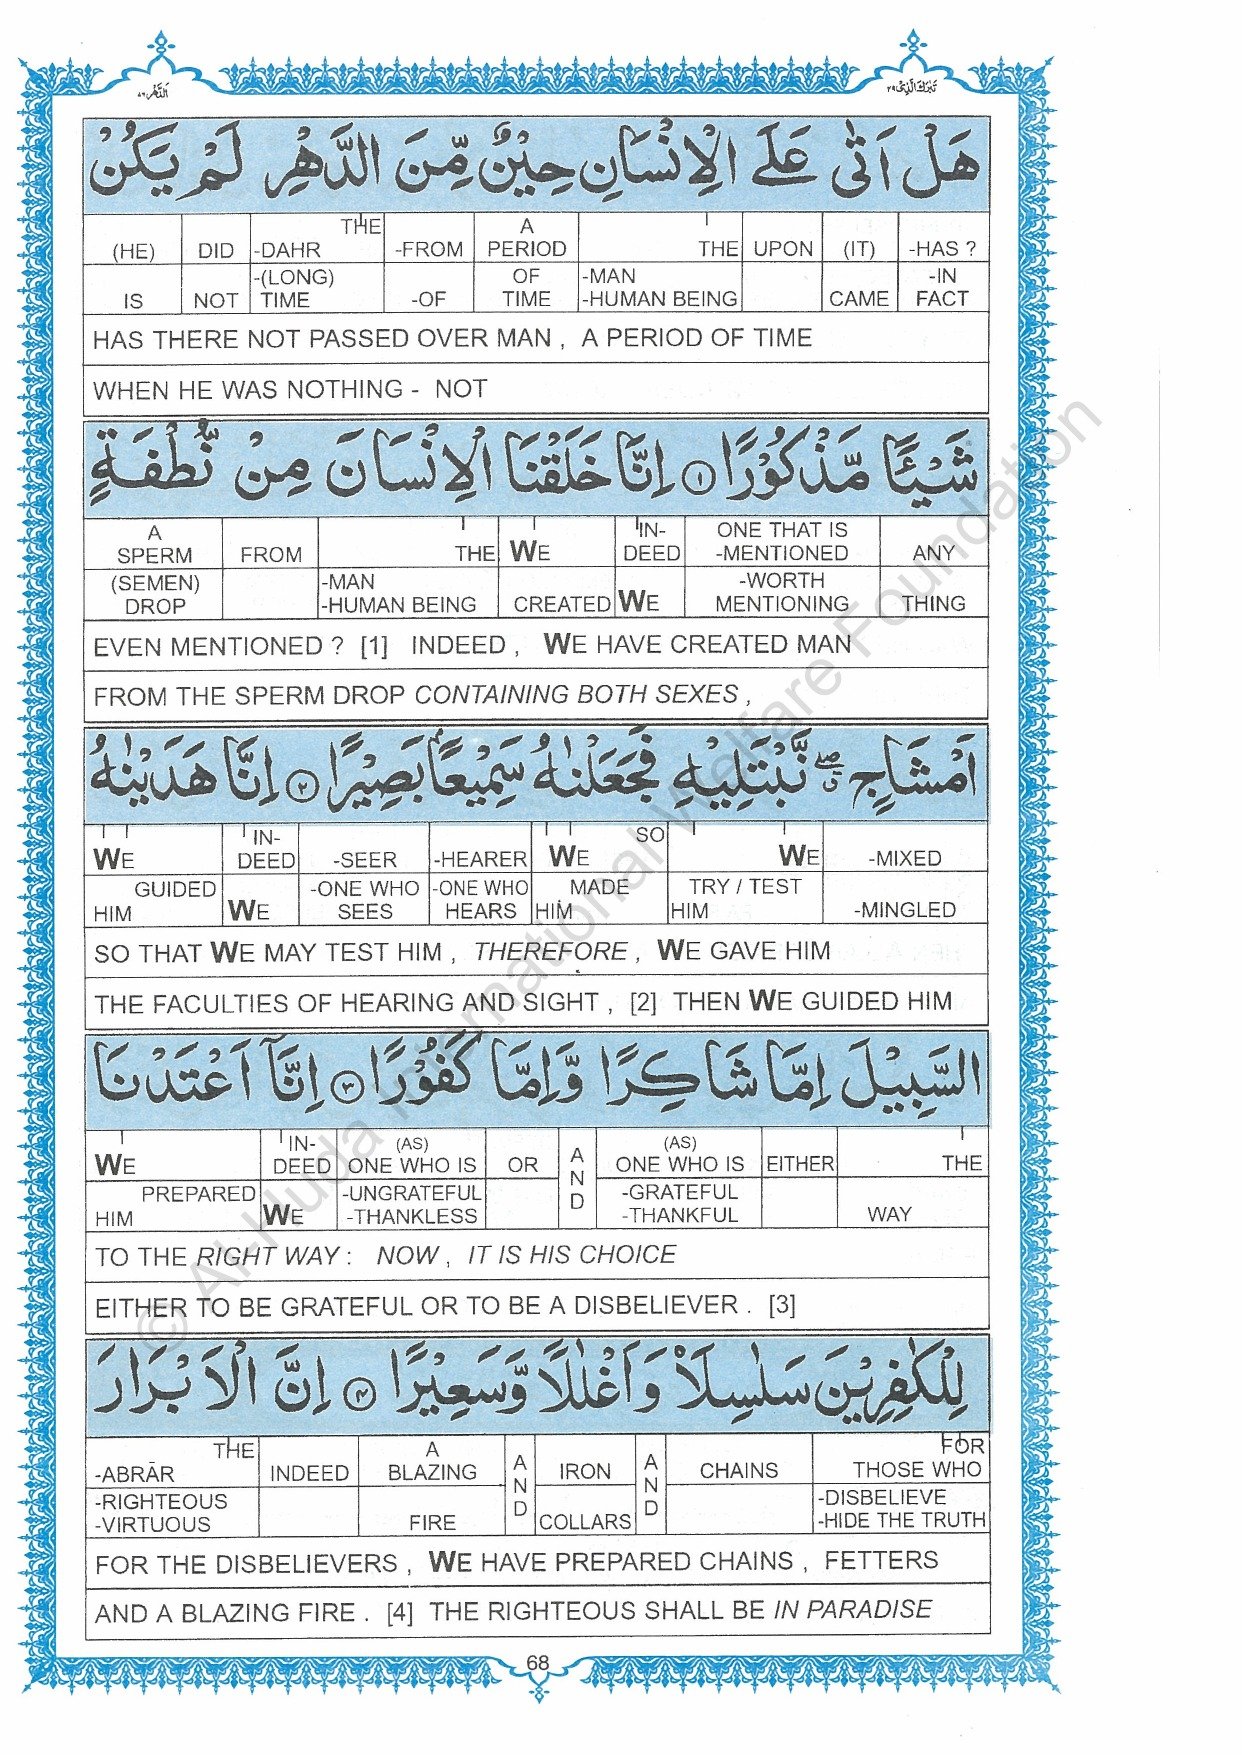 الدَّهْر ٧٦
تَبٰرَكَ الَّذِىْ ٢٩
هَلْ اَتٰى عَلَى الْاِنْسَانِ حِيْنٌ مِّنَ الدَّهْرِ لَمْ يَكُنْ
(HE) DID THE -DAHR -FROM A PERIOD THE UPON (IT) -HAS ?
IS NOT -(LONG) TIME -OF OF TIME -MAN -HUMAN BEING CAME -IN FACT
HAS THERE NOT PASSED OVER MAN , A PERIOD OF TIME
WHEN HE WAS NOTHING - NOT
شَيْـًٔا مَّذْكُوْرًا ۝١ اِنَّا خَلَقْنَا الْاِنْسَانَ مِنْ نُّطْفَةٍ
A SPERM FROM THE WE IN- DEED ONE THAT IS -MENTIONED ANY
(SEMEN) DROP -MAN -HUMAN BEING CREATED WE -WORTH MENTIONING THING
EVEN MENTIONED ? [1] INDEED , WE HAVE CREATED MAN
FROM THE SPERM DROP CONTAINING BOTH SEXES ,
اَمْشَاجٍ ۖ نَّبْتَلِيْهِ فَجَعَلْنٰهُ سَمِيْعًۢا بَصِيْرًا ۝٢ اِنَّا هَدَيْنٰهُ
WE IN- DEED -SEER -HEARER WE SO WE -MIXED
GUIDED HIM WE -ONE WHO SEES -ONE WHO HEARS MADE HIM TRY / TEST HIM -MINGLED
SO THAT WE MAY TEST HIM , THEREFORE , WE GAVE HIM
THE FACULTIES OF HEARING AND SIGHT , [2] THEN WE GUIDED HIM
السَّبِيْلَ اِمَّا شَاكِرًا وَّاِمَّا كَفُوْرًا ۝٣ اِنَّآ اَعْتَدْنَا
WE IN- DEED (AS) ONE WHO IS OR AND (AS) ONE WHO IS EITHER THE
PREPARED HIM WE -UNGRATEFUL -THANKLESS -GRATEFUL -THANKFUL WAY
TO THE RIGHT WAY : NOW , IT IS HIS CHOICE
EITHER TO BE GRATEFUL OR TO BE A DISBELIEVER . [3]
لِلْكٰفِرِيْنَ سَلٰسِلَا۟ وَاَغْلٰلًا وَّسَعِيْرًا ۝٤ اِنَّ الْاَبْرَارَ
THE -ABRĀR INDEED A BLAZING AND IRON AND CHAINS FOR THOSE WHO
-RIGHTEOUS -VIRTUOUS FIRE COLLARS -DISBELIEVE -HIDE THE TRUTH
FOR THE DISBELIEVERS , WE HAVE PREPARED CHAINS , FETTERS
AND A BLAZING FIRE . [4] THE RIGHTEOUS SHALL BE IN PARADISE
68
© Al-Huda International Welfare Foundation